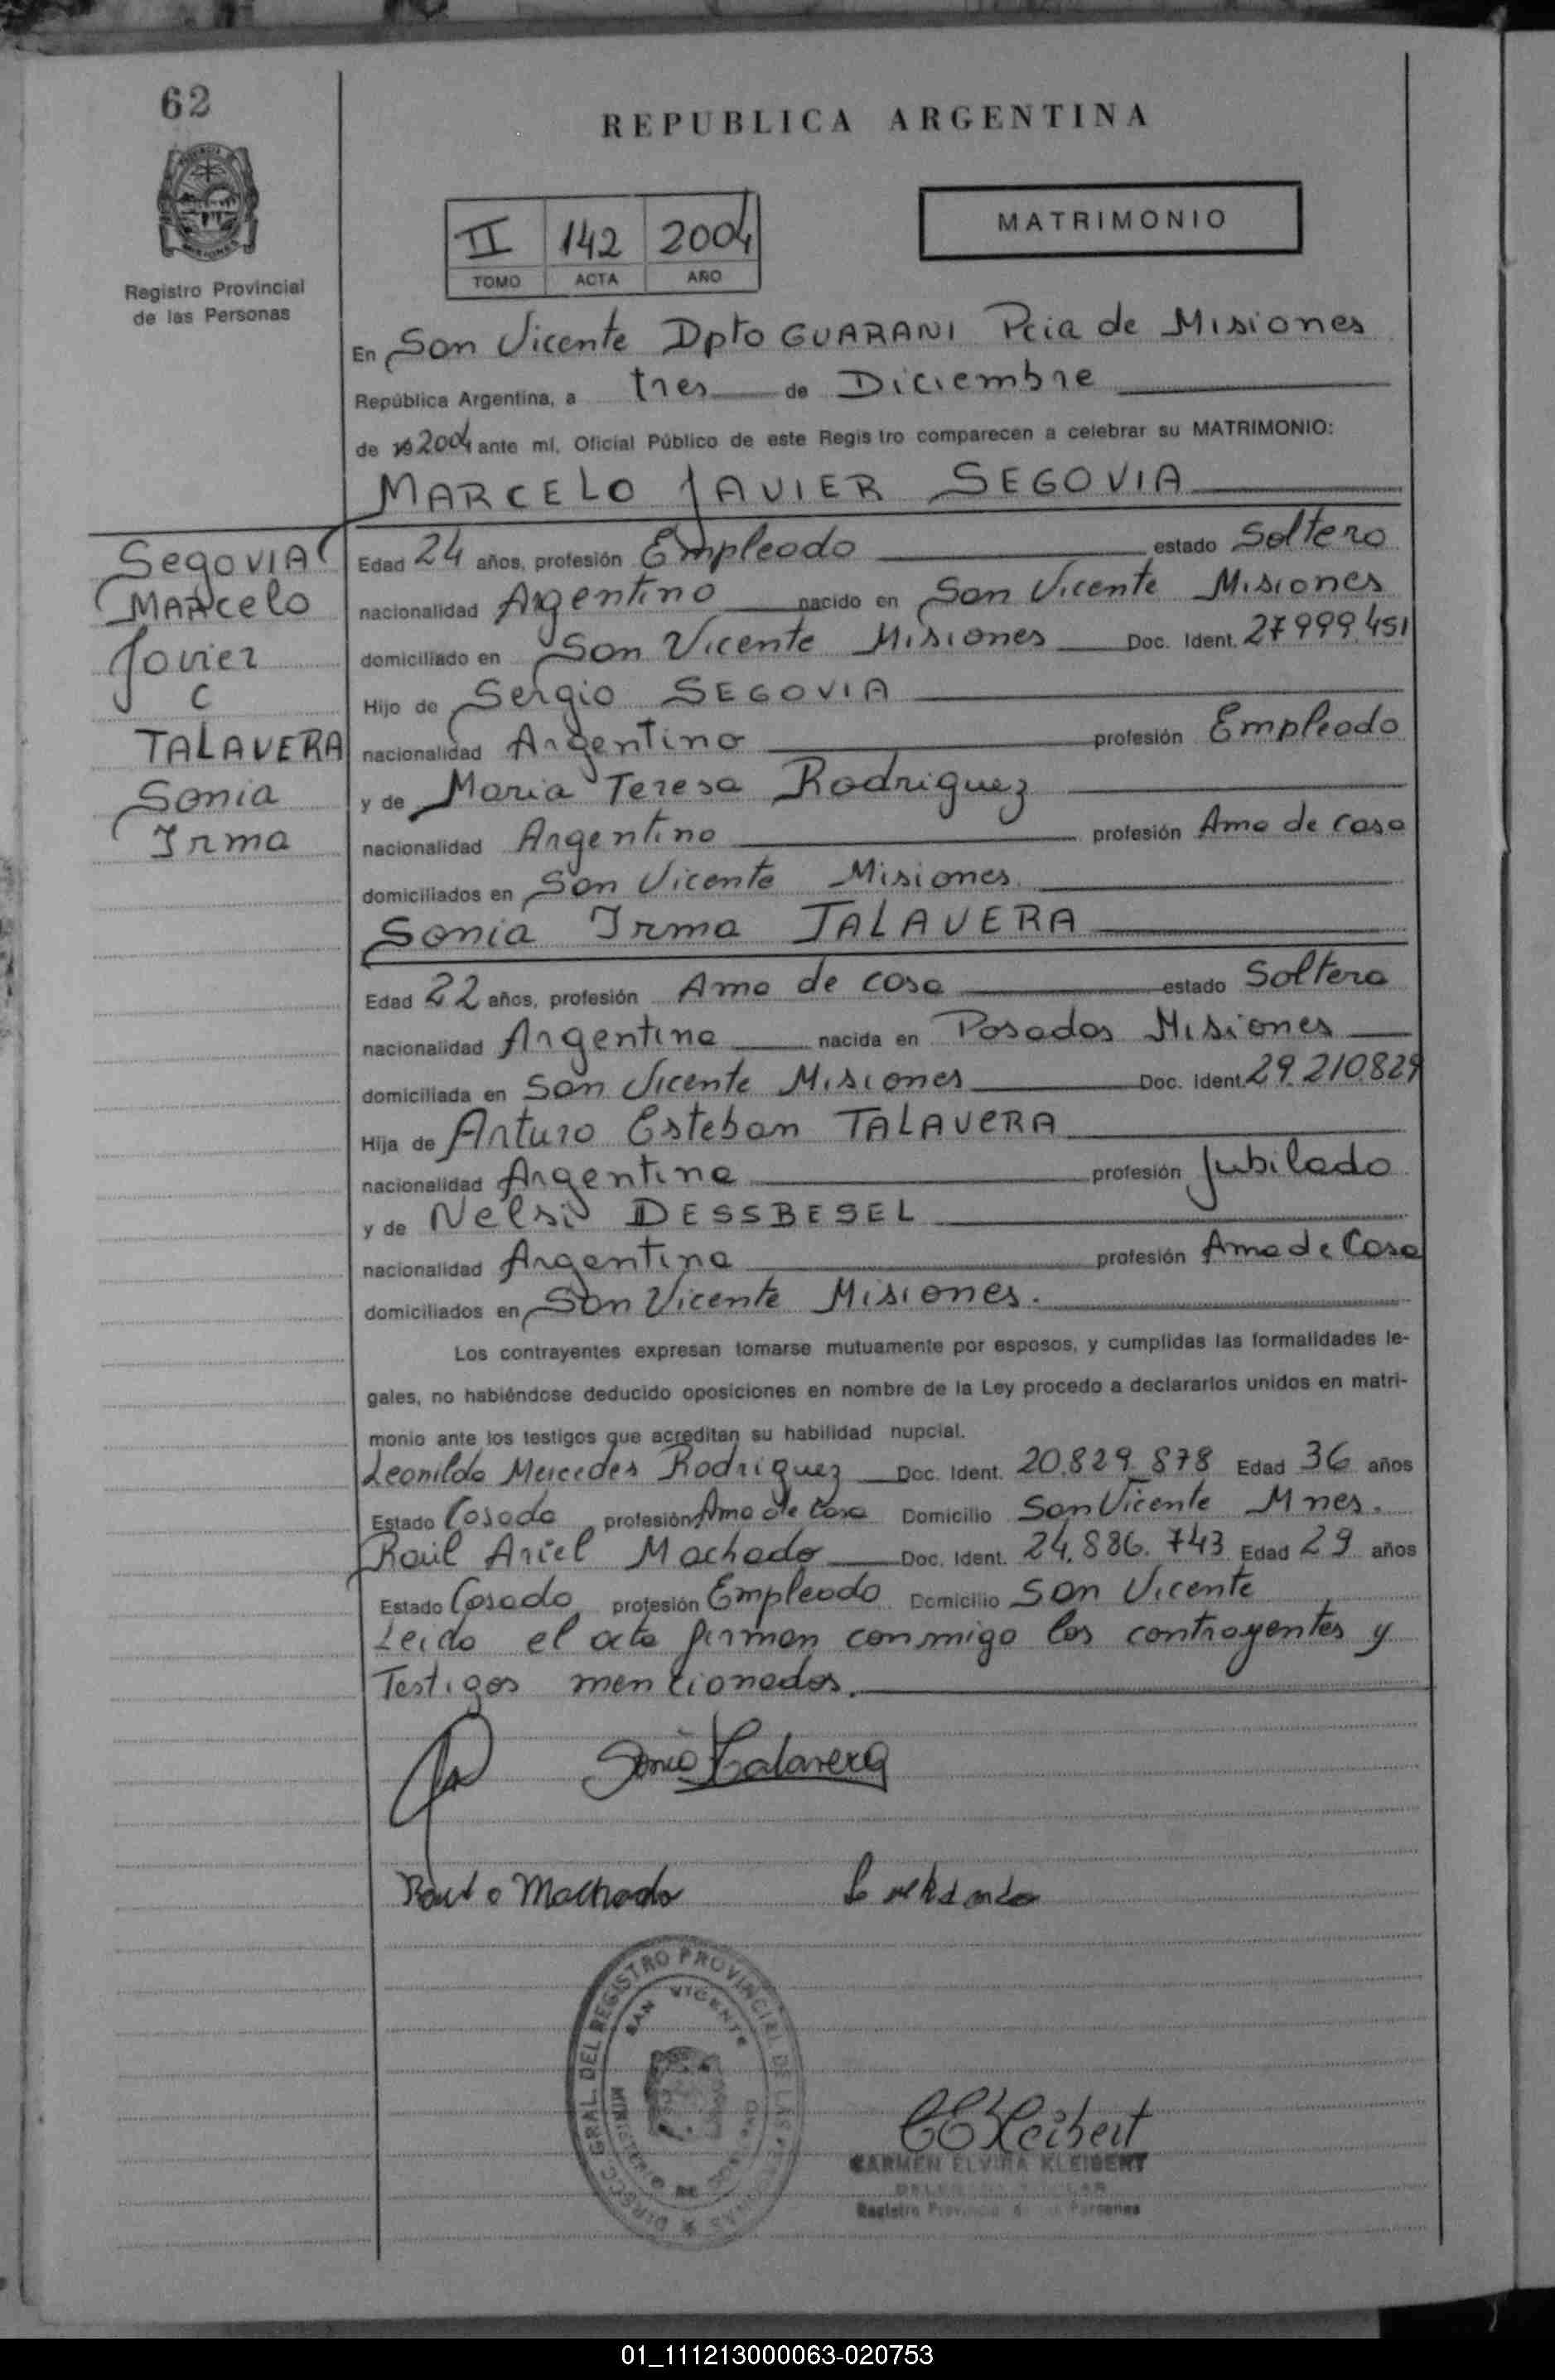 62
REPUBLICA ARGENTINA
Registro Provincial
de las Personas
II 142 2004
TOMO ACTA AÑO
MATRIMONIO
En San Vicente Dpto GUARANI Pcia de Misiones
República Argentina, a tres de Diciembre
de 19 2004 ante mí, Oficial Público de este Registro comparecen a celebrar su MATRIMONIO:
MARCELO JAVIER SEGOVIA
Segovia
Marcelo
Javier
C
TALAVERA
Sonia
Irma
Edad 24 años, profesión Empleado estado Soltero
nacionalidad Argentino nacido en San Vicente Misiones
domiciliado en San Vicente Misiones Doc. Ident. 27999.451
Hijo de Sergio SEGOVIA
nacionalidad Argentino profesión Empleado
y de Maria Teresa Rodriguez
nacionalidad Argentina profesión Ama de casa
domiciliados en San Vicente Misiones.
Sonia Irma TALAVERA
Edad 22 años, profesión Ama de casa estado Soltera
nacionalidad Argentina nacida en Posadas Misiones
domiciliada en San Vicente Misiones Doc. Ident. 29.210.829
Hija de Arturo Esteban TALAVERA
nacionalidad Argentina profesión Jubilado
y de Nelsi DESSBESEL
nacionalidad Argentina profesión Ama de Casa
domiciliados en San Vicente Misiones.
Los contrayentes expresan tomarse mutuamente por esposos, y cumplidas las formalidades le-
gales, no habiéndose deducido oposiciones en nombre de la Ley procedo a declararlos unidos en matri-
monio ante los testigos que acreditan su habilidad nupcial.
Leonilda Mercedes Rodriguez Doc. Ident. 20.829.878 Edad 36 años
Estado Casada profesión Ama de Casa Domicilio San Vicente Mnes.
Raúl Ariel Machado Doc. Ident. 24.886.743 Edad 29 años
Estado Casado profesión Empleado Domicilio San Vicente
Leida el acta firman conmigo los contrayentes y
Testigos mencionados.
Sonia Talavera
Raul a Machado
DIRECC. GRAL. DEL REGISTRO PROVINCIAL DE LAS PERSONAS
SAN VICENTE
MINISTERIO DE GOBIERNO
CEKleibert
CARMEN ELVIRA KLEIBERT
Registro Provincial de las Personas
01_111213000063-020753